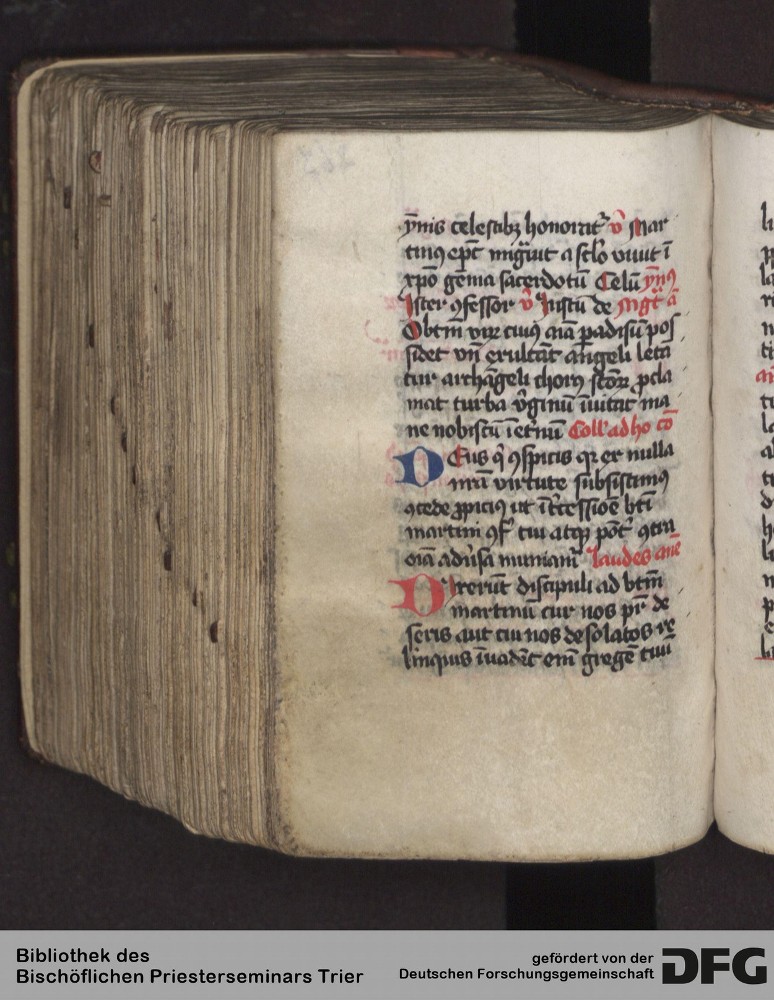 ẏmis celestibꝫ honorat᷑ v̊ Mar
tinꝯ ep̄c migͣuit a sclo viuit ī
xpō gēma sacerdotū Celū ẏmꝯ
Iste ꝯfessor v̊ Iustū de Mgt̄ ā
O btm̄ virꝫ cuiꝯ aīa ꝑadisū pos
sidet vn̄ exultāt angeli leta
tur archāgeli chorꝯ scōꝝ ꝓcla
mat turba v̓ginū īuitat ma
ne nobiscū īet̓nū Coll̓ ad ho cō
Deus qͥ ꝯspicis qꝛ ex nulla
nrā virtute subsistimꝯ
ꝯcede ꝓpiciꝯ ut īt̓cessiōe bt̄i
martini ꝯf̓ tui atqꝫ pōt̓ ꝯtra
oīa adu̓sa muniam᷑ Laudes anē
Dixerūt discipuli ad btm̄
martinū cur nos pr̄ de
seris aut cui nos desolatos re
linquis īuadēt enī gregē tuū
Bibliothek des
Bischöflichen Priesterseminars Trier
gefördert von der
Deutschen Forschungsgemeinschaft
DFG